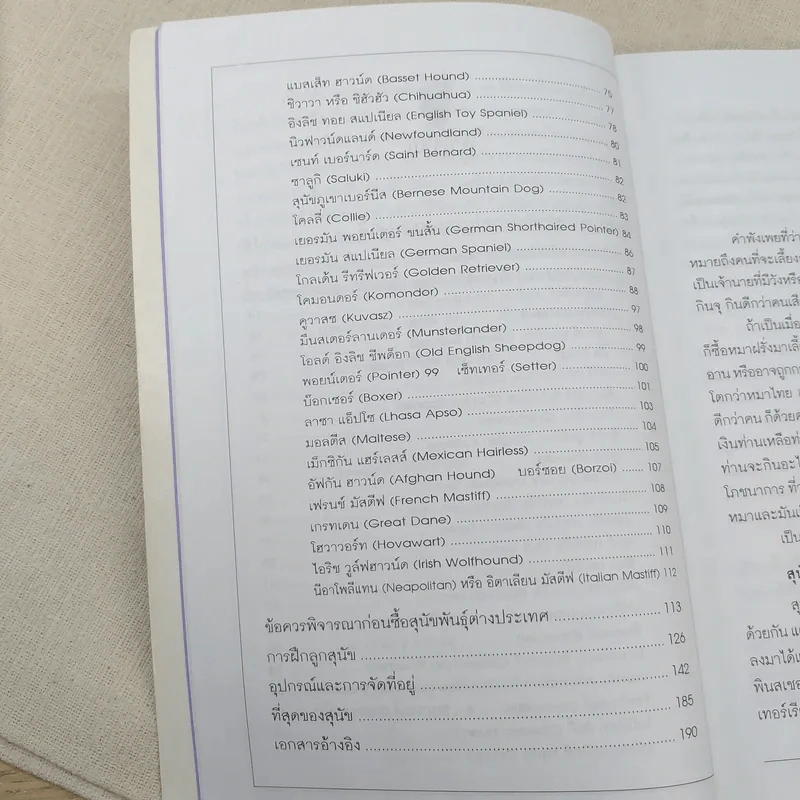 แบสเส็ท ฮาวน์ด (Basset Hound) ........ 76
ชิวาวา หรือ ชิฮัวฮัว (Chihuahua) ........ 77
อิงลิช ทอย สแปเนียล (English Toy Spaniel) ........ 78
นิวฟาวน์ดแลนด์ (Newfoundland) ........ 80
เซนท์ เบอร์นาร์ด (Saint Bernard) ........ 81
ซาลูกิ (Saluki) ........ 82
สุนัขภูเขาเบอร์นีส (Bernese Mountain Dog) ........ 82
โคลลี่ (Collie) ........ 83
เยอรมัน พอยน์เตอร์ ขนสั้น (German Shorthaired Pointer) 84
เยอรมัน สแปเนียล (German Spaniel) ........ 86
โกลเด้น รีทรีฟเวอร์ (Golden Retriever) ........ 87
โคมอนดอร์ (Komondor) ........ 88
คูวาสซ (Kuvasz) ........ 97
มึนสเตอร์ลานเดอร์ (Munsterlander) ........ 98
โอลด์ อิงลิช ชีพด็อก (Old English Sheepdog) ........ 99
พอยน์เตอร์ (Pointer) 99 เซ็ทเทอร์ (Setter) ........ 100
บ๊อกเซอร์ (Boxer) ........ 101
ลาซา แอ็ปโซ (Lhasa Apso) ........ 103
มอลตีส (Maltese) ........ 104
เม็กซิกัน แฮร์เลสส์ (Mexican Hairless) ........ 105
อัฟกัน ฮาวน์ด (Afghan Hound) บอร์ซอย (Borzoi) ....... 107
เฟรนช์ มัสตีฟ (French Mastiff) ........ 108
เกรทเดน (Great Dane) ........ 109
โฮวาวอร์ท (Hovawart) ........ 110
ไอริช วูล์ฟฮาวน์ด (Irish Wolfhound) ........ 111
นีอาโพลีแทน (Neapolitan) หรือ อิตาเลียน มัสตีฟ (Italian Mastiff) 112
ข้อควรพิจารณาก่อนซื้อสุนัขพันธุ์ต่างประเทศ ........ 113
การฝึกลูกสุนัข ........ 126
อุปกรณ์และการจัดที่อยู่ ........ 142
ที่สุดของสุนัข ........ 185
เอกสารอ้างอิง ........ 190
คำพังเพยที่ว่า
หมายถึงคนที่จะเลี้ยง
เป็นเจ้านายที่มีวังหรือ
กินจุ กินดีกว่าคนเสีย
ถ้าเป็นเมื่อ
ก็ซื้อหมาฝรั่งมาเลี้
อาน หรืออาจถูกก
โตกว่าหมาไทย
ดีกว่าคน ก็ด้วย
เงินท่านเหลือท
ท่านจะกินอะไ
โภชนาการ ที่
หมาและมัน
เป็น
สุ
ด้วยกัน แ
ลงมาได้แ
พินสเชอ
เทอร์เรี